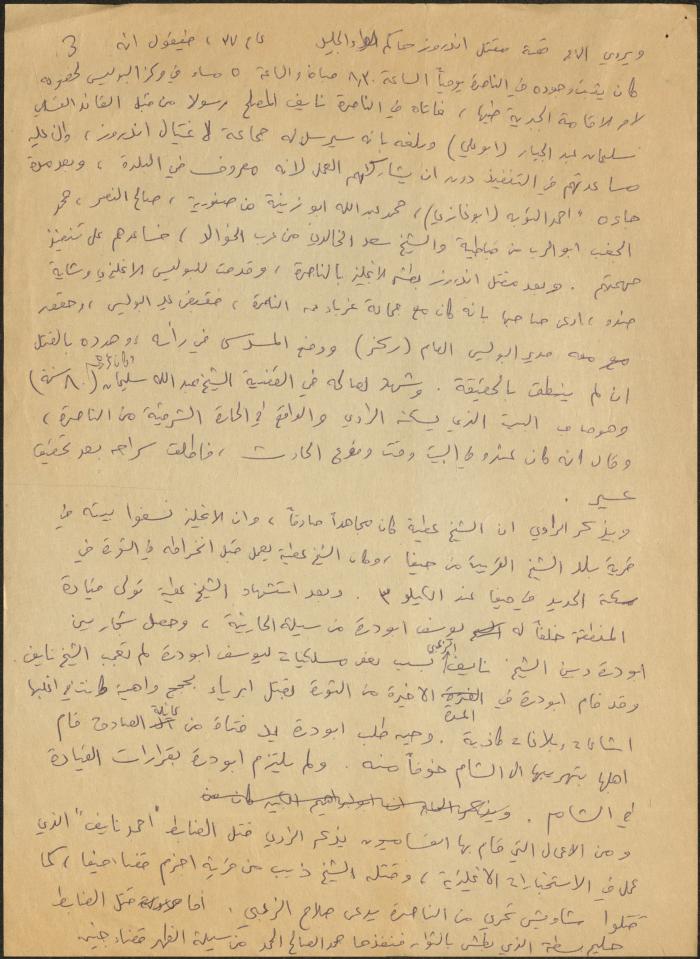 3
ويروي الاخ قصة مقتل اندروز حاكم لواء الجليل عام ٣٧ ، فيقول انه
كان يثبت وجوده في الناصرة يومياً الساعة ٨,٣٠ صباحاً والساعة ٥ مساء في مركز البوليس لخضوعه
لأمر الاقامة الجبرية فيها ، فأتاه في الناصرة نايف المصلح رسولا من قبل القائد
سليمان عبد الجبار (ابو علي) وبلغه بانه سيرسل له جماعة لاغتيال اندروز ، وان عليه
مساعدتهم في التنفيذ دون ان يشاركهم العمل لأنه معروف في البلدة ، وبعد مدة
جاءه : احمد التوبه (ابو غازي) ، محمد عبد الله ابو زينة من صفورية ، صالح النصر ، محمد
ابو الرب من قباطية والشيخ سعد الخالدي من عرب الخوالد ، فساعدهم على تنفيذ
مهمتهم . وبعد مقتل اندروز بطش الانجليز بالناصرة ، وقدمت للبوليس الانجليزي وشاية
ضده ، ادعى صاحبها بانه كان مع جماعة غرباء عن الناصرة ، فقبض عليه البوليس ، وحقق
معه مدير البوليس العام ووضع المسدس في رأسه ، وهدده بالقتل
ان لم ينطق بالحقيقة . وشهد لصالحه في القضية الشيخ عبد الله سليمان وكان عمره (٨٠ سنة)
وهو صاحب البيت الذي يسكنه الراوي والواقع في الحارة الشرقية من الناصرة ،
وقال انه كان عنده في البيت وقت وقوع الحادث ، فاطلقت سراحه بعد تحقيق
عسير .
ويذكر الراوي ان الشيخ عطية كان مجاهداً صادقاً ، وان الانجليز نسفوا بيته في
قرية بلد الشيخ القريبة من حيفا ، وكان الشيخ عطية يعمل قبل انخراطه في الثورة في
سكة الحديد في حيفا عند الكيلو ٣ . وبعد استشهاد الشيخ عطية تولى قيادة
المنطقة خلفاً له يوسف ابو درة من سيلة الحارثية ، وحصل شجار بين
ابو درة وبين الشيخ نايف الزعبي بسبب بعض مسلكيات ليوسف ابو درة لم تعجب الشيخ نايف
وقد قام ابو درة في المدة الاخيرة من الثورة بقتل ابرياء بحجج واهية كانت في اغلبها
اشاعات وبلاغات كاذبة . وحين طلب ابو درة يد فتاة من عائلة الصادق قام
اهلها بتهريبها الى الشام خوفاً منه . ولم يلتزم ابو درة بقرارات القيادة
في الشام .
ومن الاعمال التي قام بها القساميون يذكر الراوي قتل الضابط "احمد نايف" الذي
عمل في الاستخبارات الانجليزية ، وقتله الشيخ ذيب من قرية اجزم قضاء حيفا ، كما
قتلوا شاويش تحري من الناصرة يدعى صلاح الزعبي . اما قتل الضابط
حليم بسطة الذي بطش بالثوار فنفذها محمد الصالح الحمد من سيلة الظهر قضاء جنين